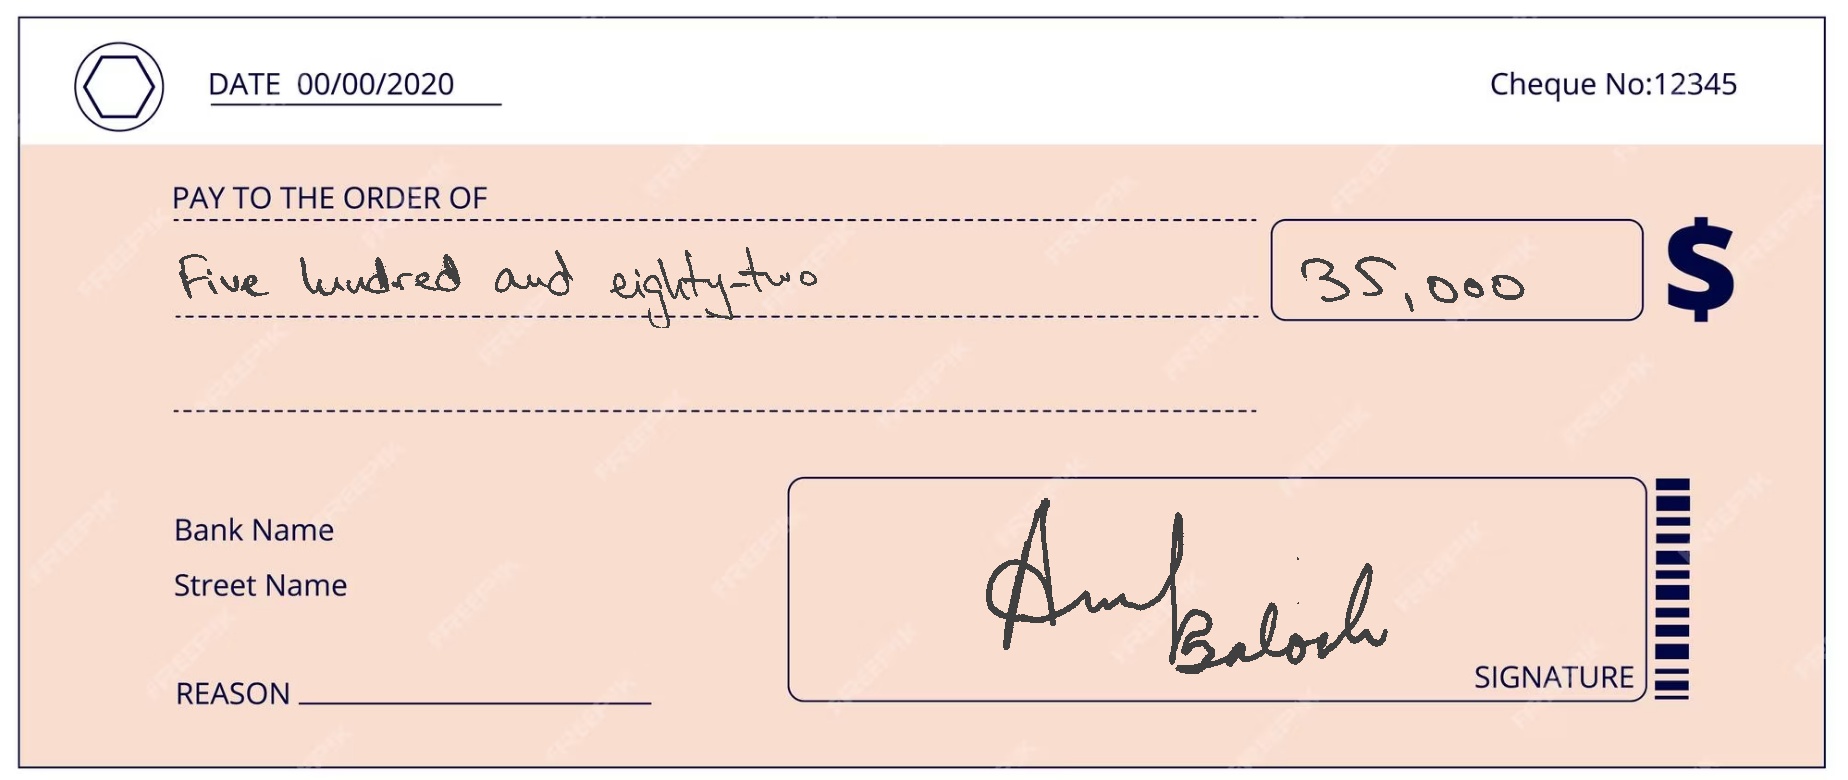 DATE 00/00/2020
Cheque No:12345
PAY TO THE ORDER OF
Five hundred and eighty-two
35,000
$
Bank Name
Street Name
Baloch
SIGNATURE
REASON